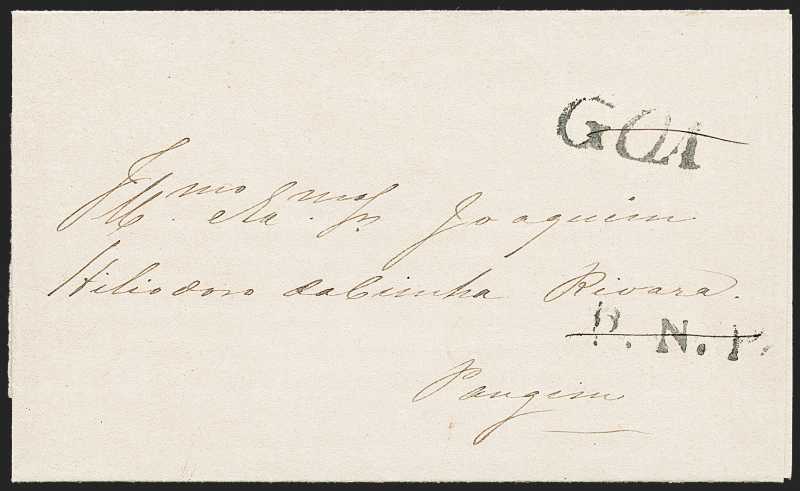 GOA
Illmo. Exmo. Sr. Joaquim
Hiliodoro da Cunha Rivara.
P. N. P.
Pangim